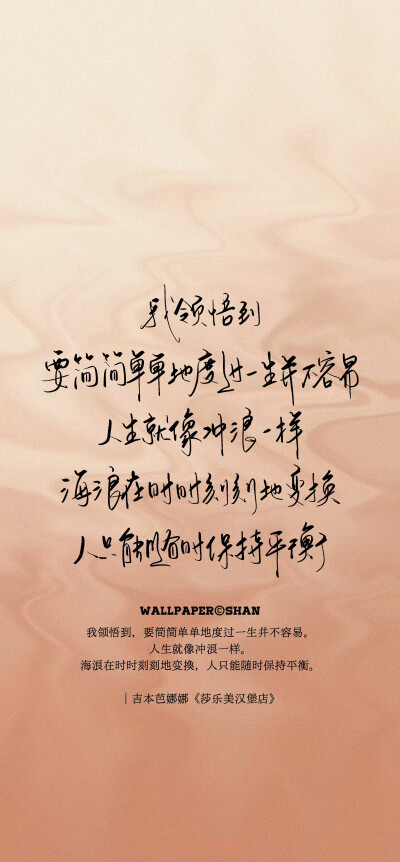 我领悟到
要简简单单地度过一生并不容易
人生就像冲浪一样
海浪在时时刻刻地变换
人只能随时保持平衡
WALLPAPER©SHAN
我领悟到，要简简单单地度过一生并不容易。
人生就像冲浪一样。
海浪在时时刻刻地变换，人只能随时保持平衡。
｜吉本芭娜娜《莎乐美汉堡店》